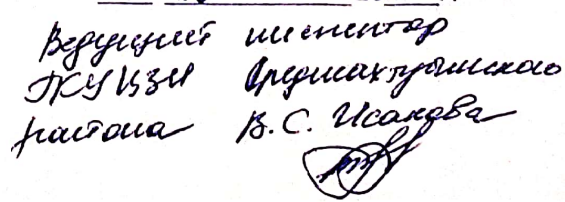 Ведущий инспектор
ГКУ ЦЗН Среднеахтубинского
района В.С. Исакова